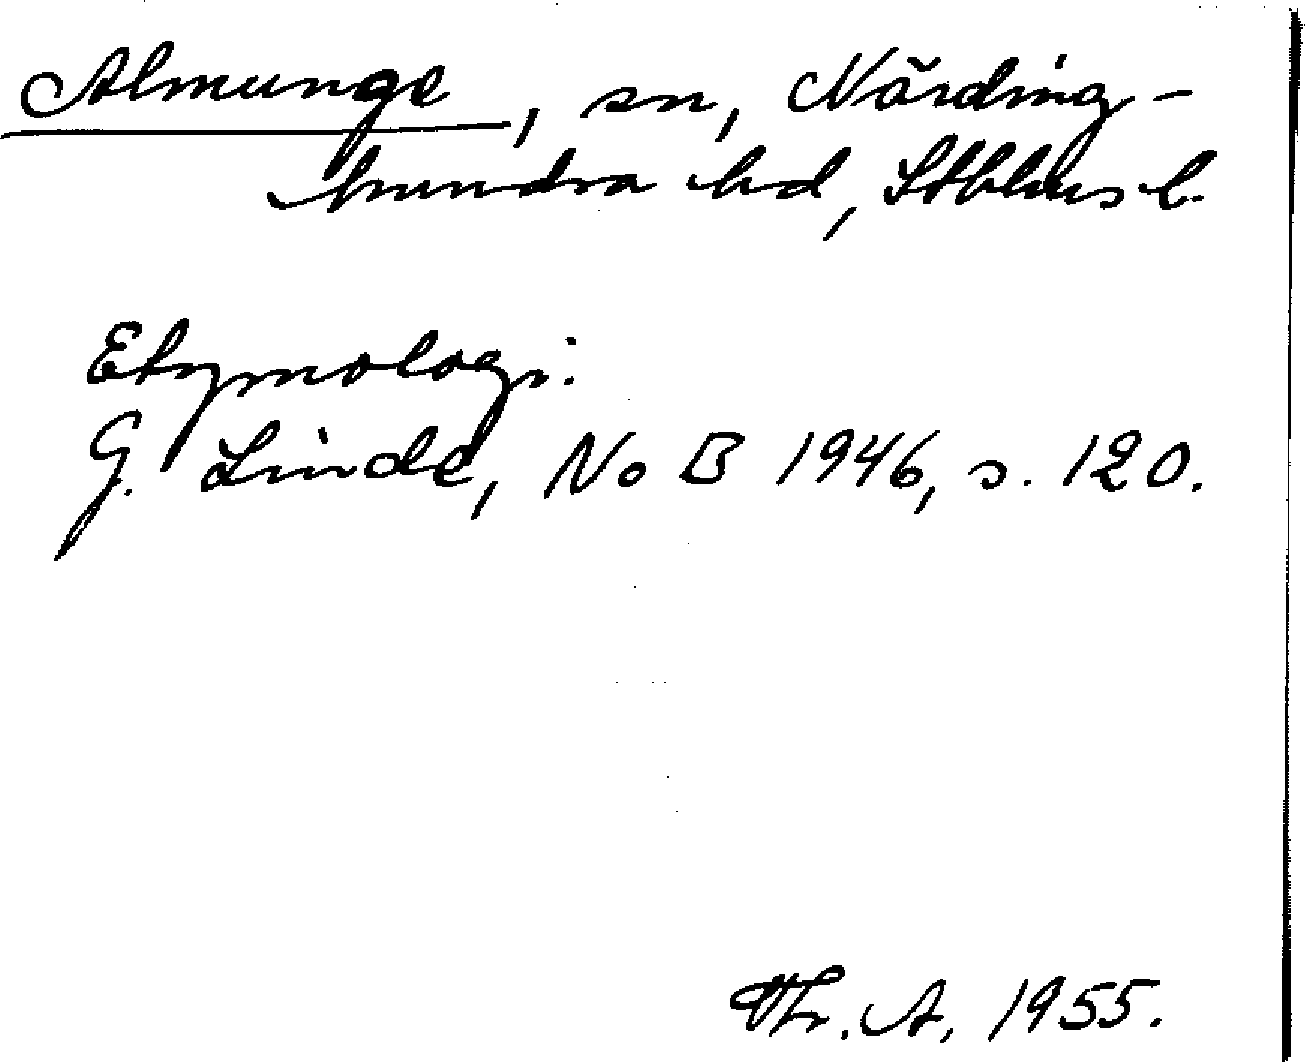 Almunge, sn, Närding-
hundra hd, Stblms l.
Etymologi:
G. Linde, No B 1946, s. 120.
Th. A. 1955.